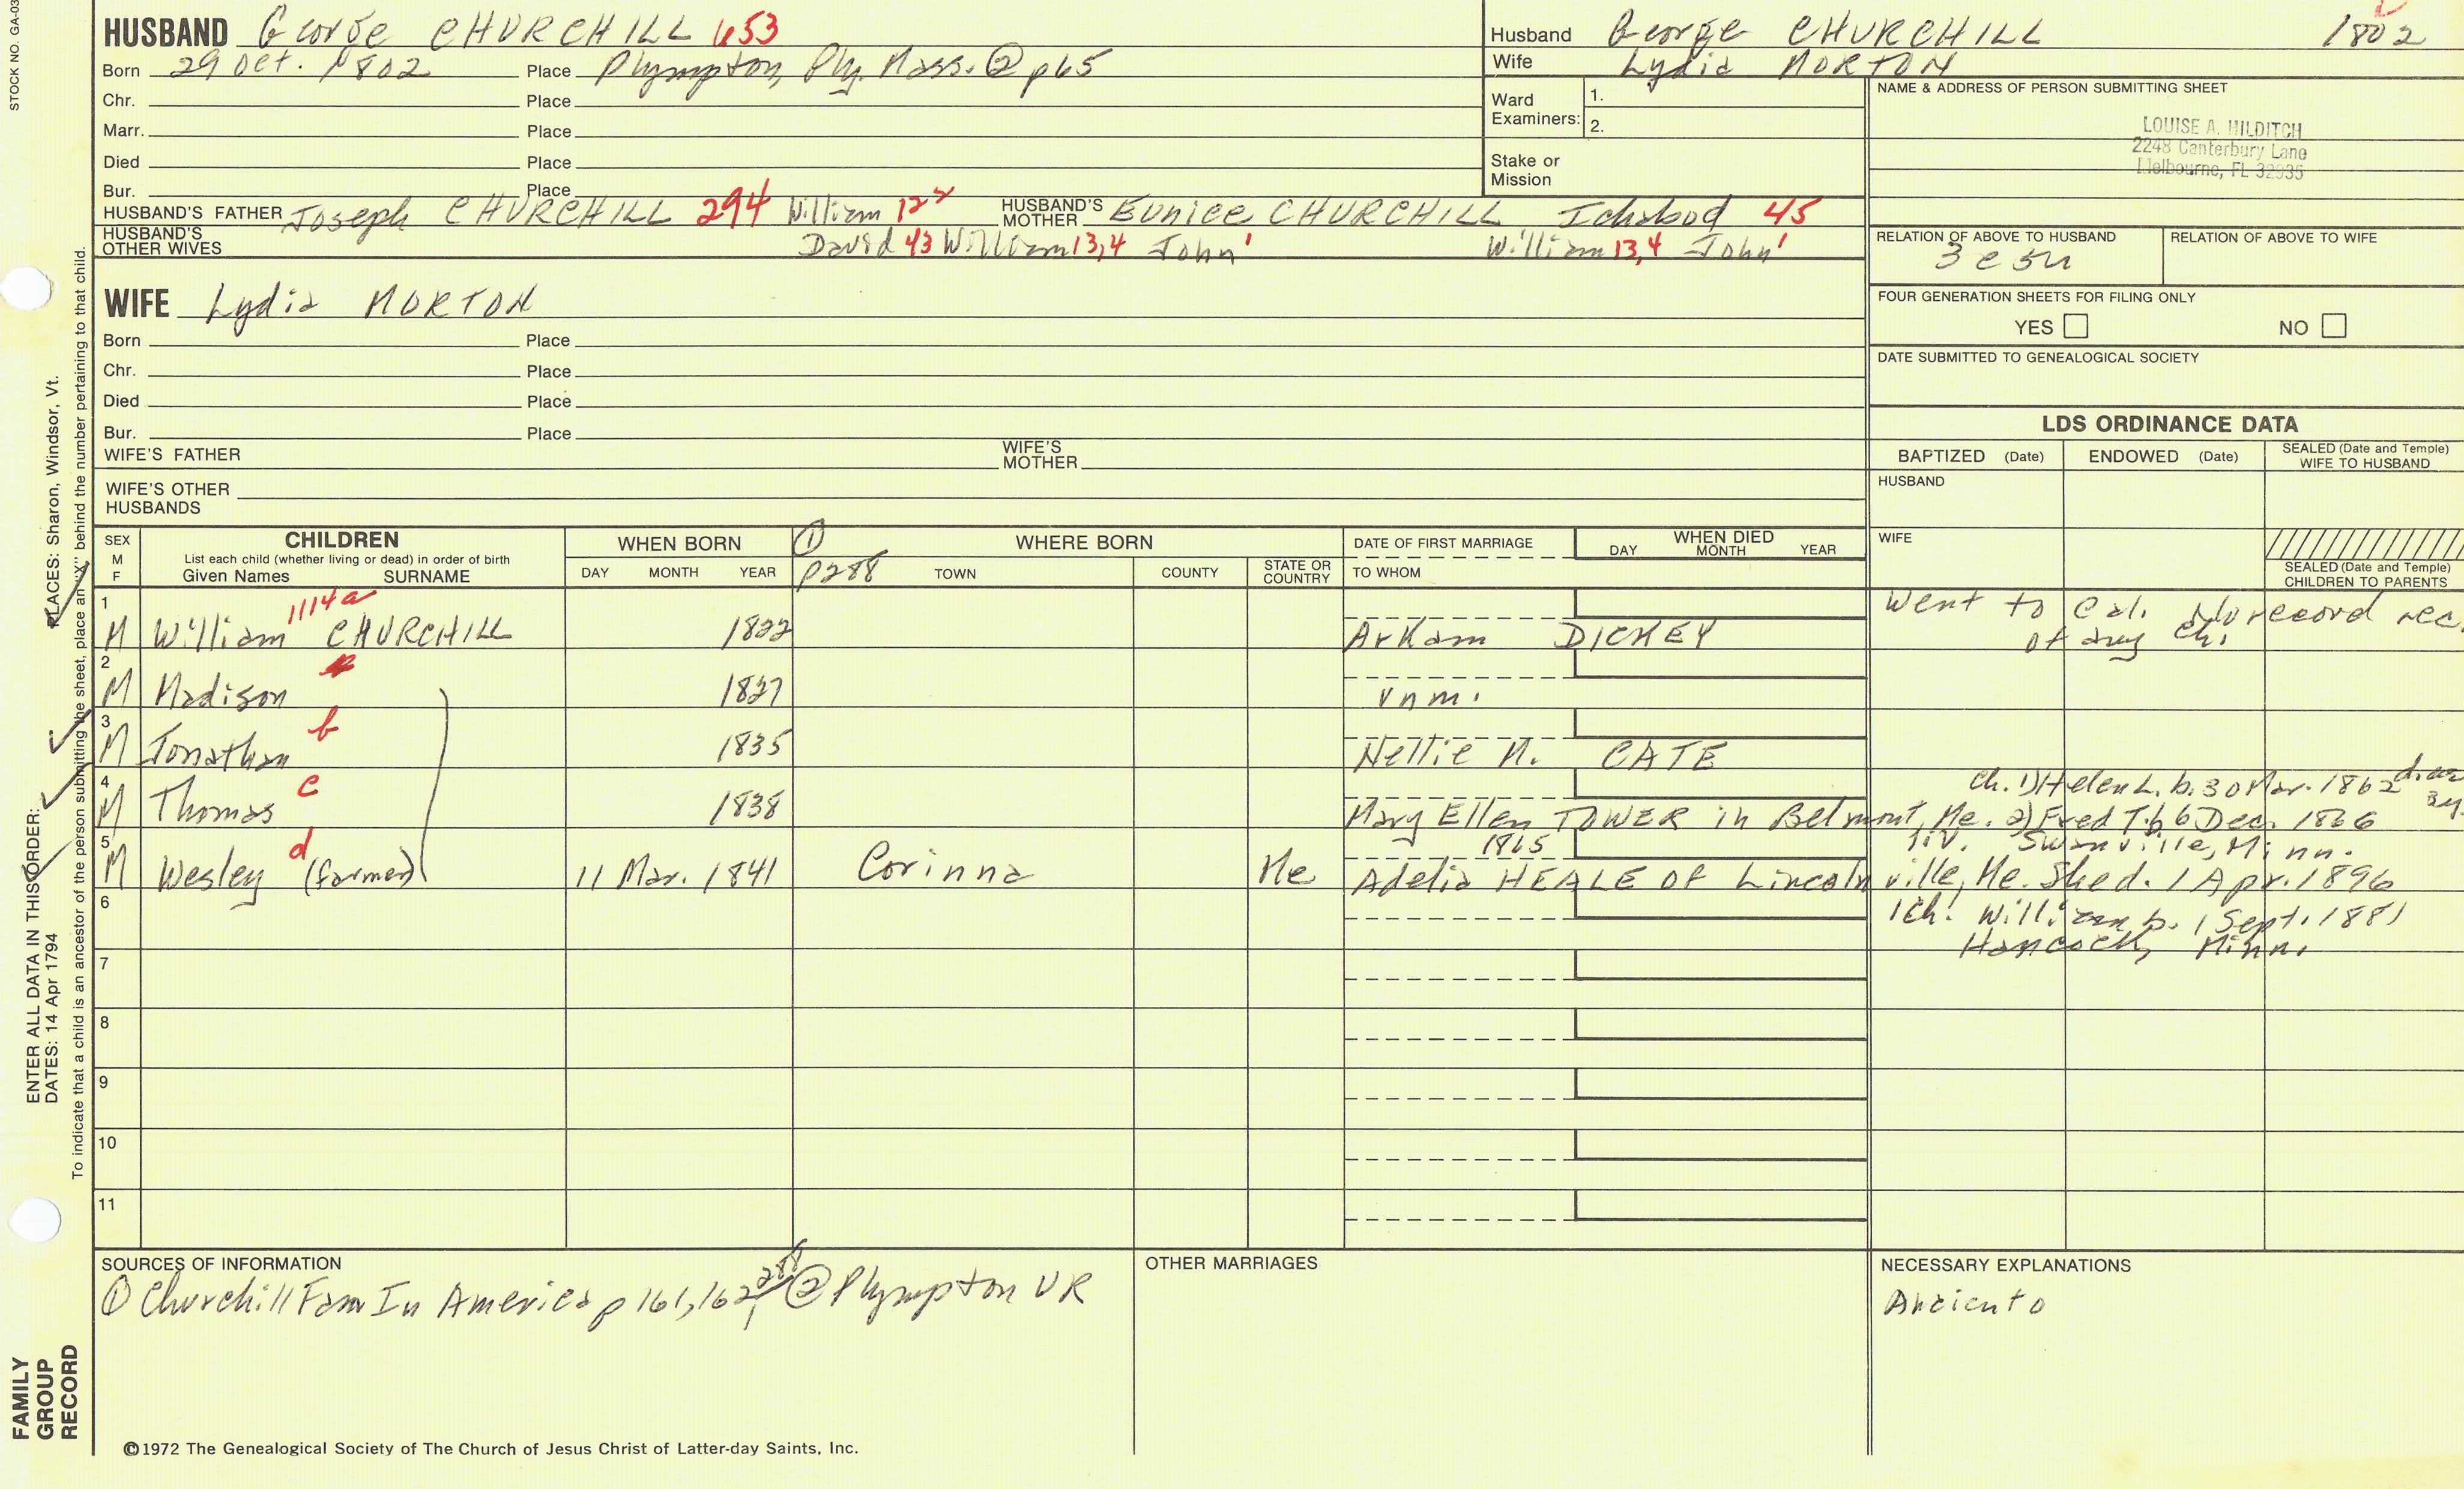 STOCK NO. GA-03
HUSBAND George CHURCHILL 653
Born 29 Oct. 1802 Place Plympton, Ply. Mass. ② p65
Chr. Place
Marr. Place
Died Place
Bur. Place
HUSBAND'S FATHER Joseph CHURCHILL 294 William 122 HUSBAND'S MOTHER Eunice CHURCHILL Ichabod 45
HUSBAND'S OTHER WIVES David 43 William 13,4 John' William 13,4 John'
Husband George CHURCHILL 1802
Wife Lydia MORTON
Ward Examiners: 1.
2.
Stake or Mission
NAME & ADDRESS OF PERSON SUBMITTING SHEET
LOUISE A. HILDITCH
2248 Canterbury Lane
Melbourne, FL 32935
RELATION OF ABOVE TO HUSBAND RELATION OF ABOVE TO WIFE
FOUR GENERATION SHEETS FOR FILING ONLY
YES NO
DATE SUBMITTED TO GENEALOGICAL SOCIETY
WIFE Lydia MORTON
Born Place
Chr. Place
Died Place
Bur. Place
WIFE'S FATHER WIFE'S MOTHER
WIFE'S OTHER HUSBANDS
LDS ORDINANCE DATA
BAPTIZED (Date) ENDOWED (Date) SEALED (Date and Temple) WIFE TO HUSBAND
HUSBAND
WIFE
SEALED (Date and Temple) CHILDREN TO PARENTS
SEX M F CHILDREN List each child (whether living or dead) in order of birth Given Names SURNAME
WHEN BORN DAY MONTH YEAR
① p288 WHERE BORN TOWN COUNTY STATE OR COUNTRY
DATE OF FIRST MARRIAGE TO WHOM
WHEN DIED DAY MONTH YEAR
1 M William 1114a CHURCHILL 1822 Arkam DICKEY Went to Cal. No record rec. of any ch.
2 M Madison 1827 unm.
3 M Jonathan b 1835 Nellie M. CATE
4 M Thomas c 1838 Mary Ellen TOWER in Belmont, Me. Ch. 1) Helen L. b. 30 Mar. 1862 2) Fred T. b 6 Dec. 1866
liv. Swanville, Minn.
5 M Wesley d (farmer) 11 Mar. 1841 Corinna Me 1865 Adelia HEALE of Lincolnville, Me. She d. 1 Apr. 1896
1 Ch. William b. 1 Sept. 1881
Hancock, Minn.
6
7
8
9
10
11
SOURCES OF INFORMATION
① Churchill Fam In America p 161, 162, 288 ② Plympton VR
OTHER MARRIAGES
NECESSARY EXPLANATIONS
©1972 The Genealogical Society of The Church of Jesus Christ of Latter-day Saints, Inc.
FAMILY
GROUP
RECORD
ENTER ALL DATA IN THIS ORDER:
DATES: 14 Apr 1794 PLACES: Sharon, Windsor, Vt.
To indicate that a child is an ancestor of the person submitting the sheet, place an "X" behind the number pertaining to that child.